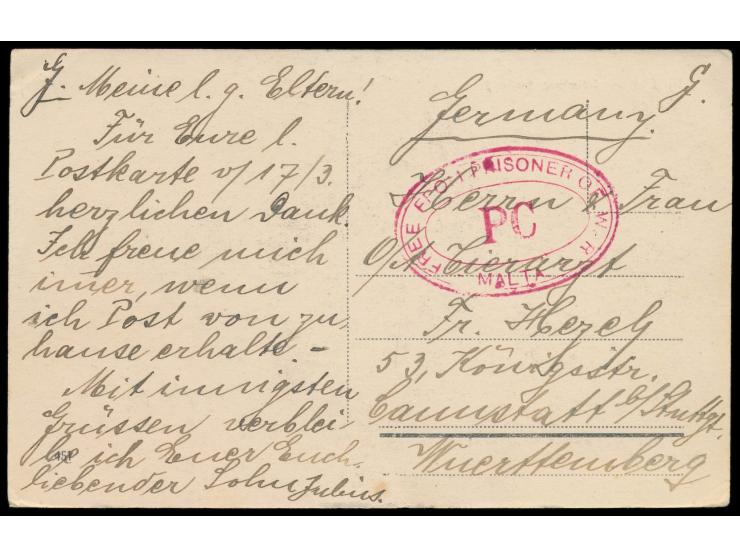 J. Meine l. g. Eltern!
Für Eure l.
Postkarte v/17/3.
herzlichen Dank.
Ich freue mich
imer, wenn
ich Post von zu
hause erhalte –
Mit innigsten
Grüssen verblei
be ich Euer Euch
liebender Sohn Julius.
451
G.
Germany
Herrn & Frau
O/A Tierarzt
Fr. Hezel
53, Königsstr.
Cannstatt b/Stuttgt.
Wuerttemberg
FREE FRO PRISONER OF W R
PC
MALTA